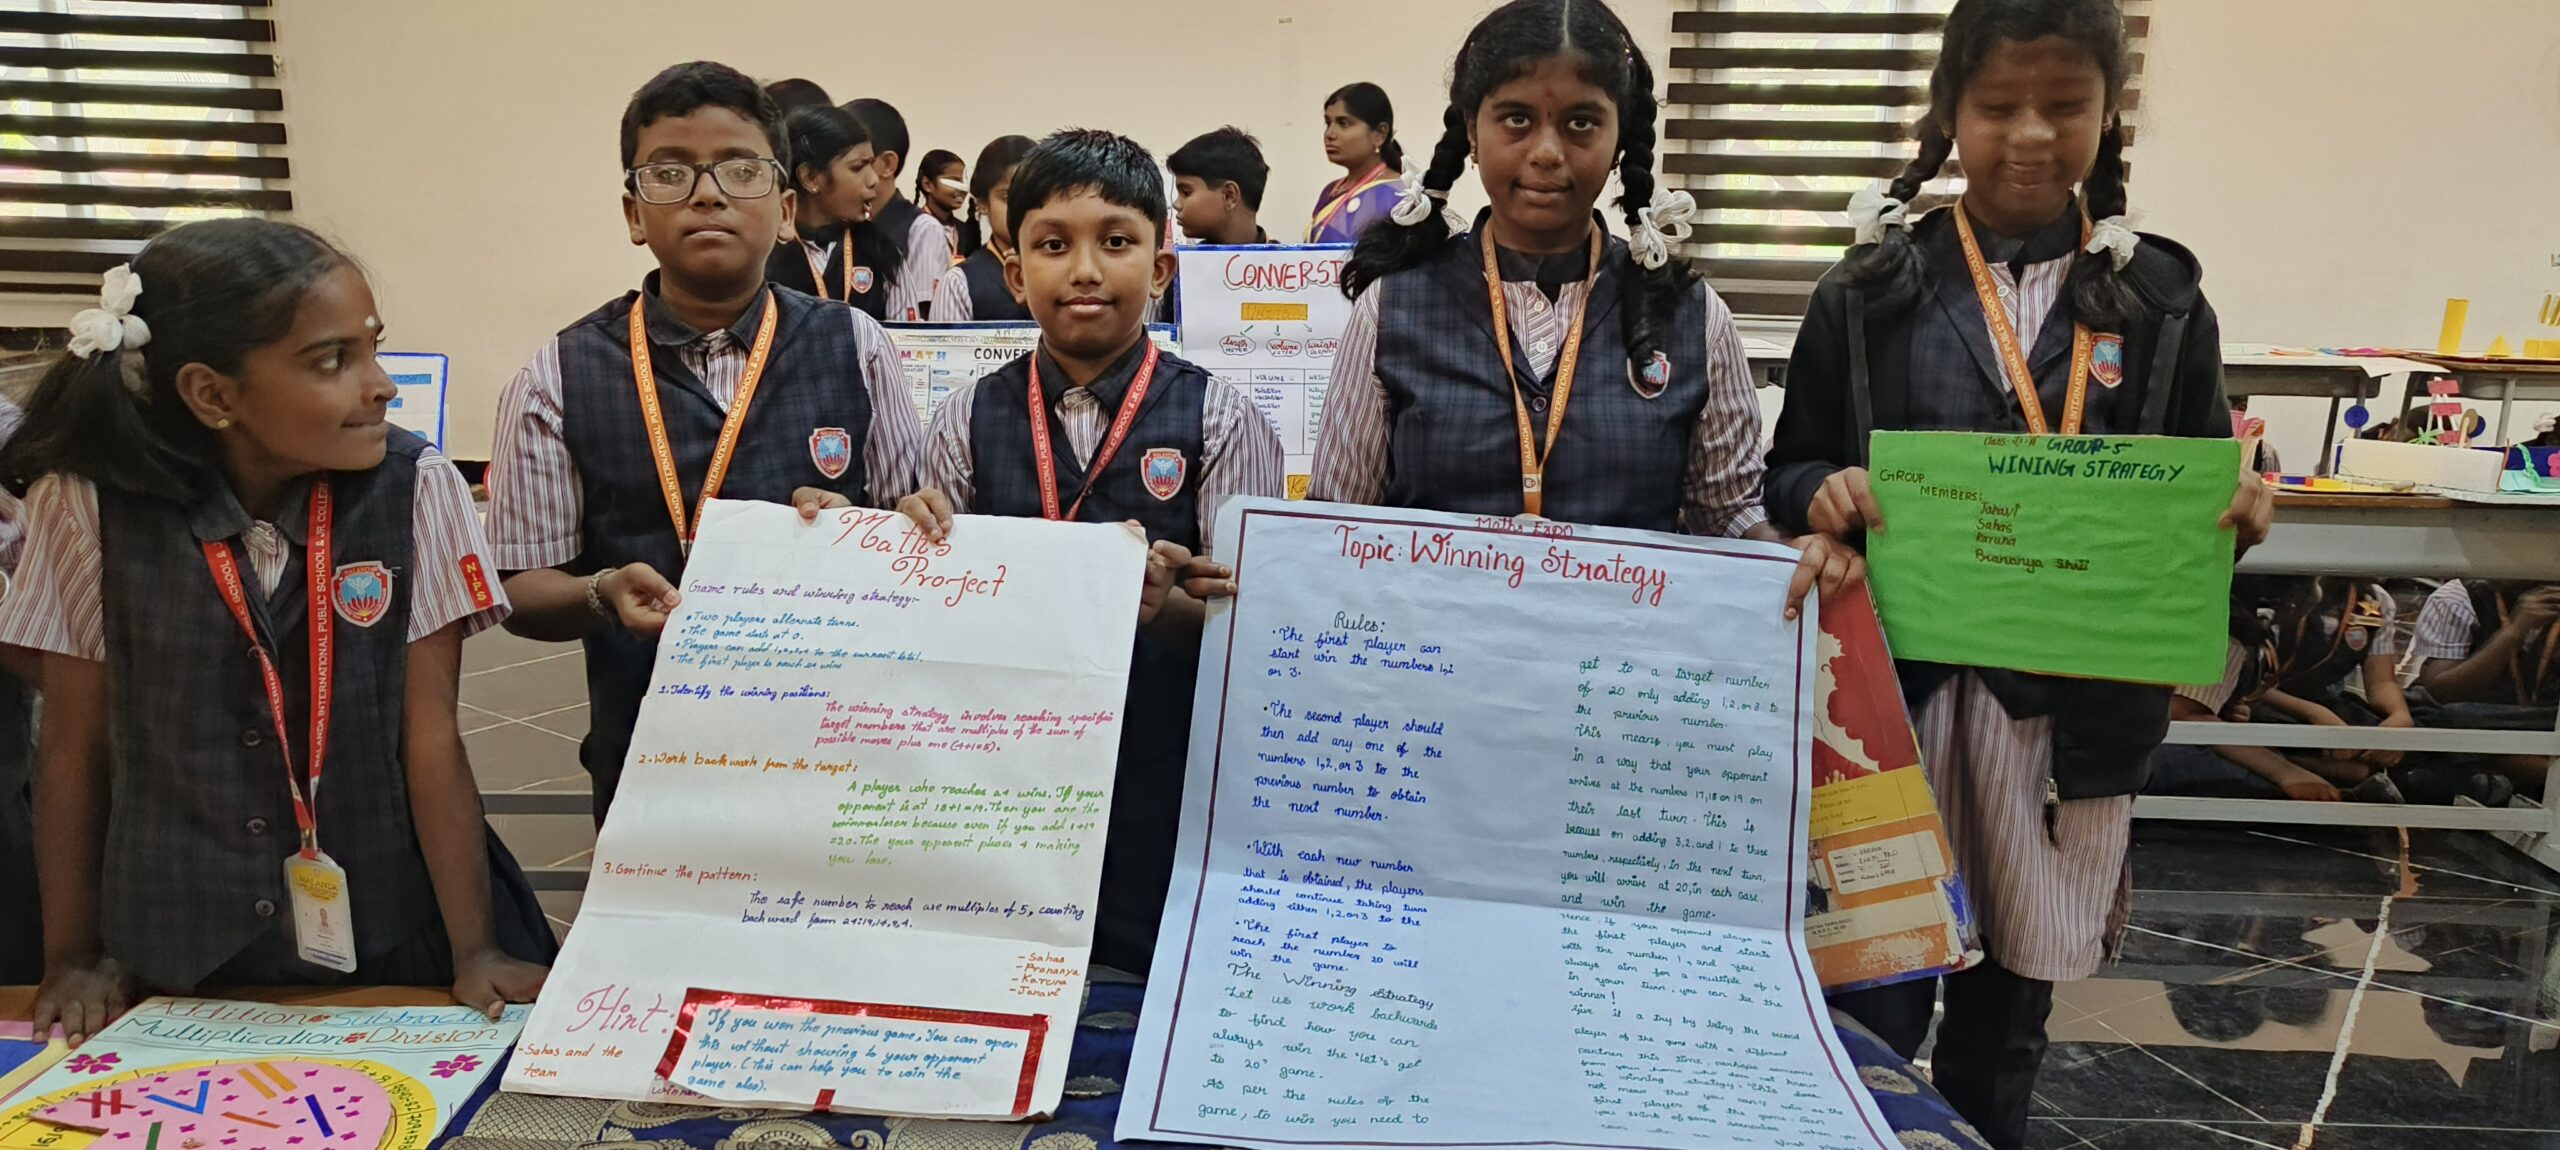 Maths
Project
Game rules and winning strategy:-
• Two players alternate turns.
• The game starts at 0.
• Players can add 1,2,3,4 to the current total.
• The first player to reach 24 wins
1. Identify the winning positions:
The winning strategy involves reaching specific
target numbers that are multiples of the sum of
possible moves plus one (4+1=5).
2. Work backwark from the target:
A player who reaches 24 wins. If your
opponent is at 18+1=19. Then you are the
loser because even if you add 1+19
=20. The your opponent places 4 making
you lose.
3. Continue the pattern:
The safe number to reach are multiples of 5, counting
backward from 24:19,14,9,4.
- Sahas
- Prananya
- Karuna
- Janavi
Hint:
- Sahas and the
team
If you won the previous game, You can open
this without showing to your opponent
player. (This can help you to win the
game also).
Maths Expo
Topic: Winning Strategy.
Rules:
• The first player can
start win the numbers 1,2
or 3.
• The second player should
then add any one of the
numbers 1,2, or 3 to the
previous number to obtain
the next number.
• With each new number
that is obtained, the players
should continue taking turns
adding either 1,2, or 3 to the
• The first player to
reach the number 20 will
win the game.
The Winning Strategy
Let us work backwards
to find how you can
always win the 'let's get
to 20' game.
As per the rules of the
game, to win you need to
get to a target number
of 20 only adding 1,2, or 3 to
the previous number.
This means, you must play
in a way that your opponent
arrives at the numbers 17,18 or 19 on
their last turn. This is
because on adding 3,2, and 1 to these
numbers, respectively, in the next turn,
you will arrive at 20, in each case.
and win the game.
Hence, if your opponent plays as
the first player and starts
with the number 1, and you
always aim for a multiple of 4
in your turn, you can be the
winner!
Give it a try by being the second
player of the game with a different
partner this time, perhaps someone
from your home who does not know
the winning strategy. This does
not mean that you can't win as the
first player of the game. Can
you think of some scenarios when you
can win as the first player?
GROUP-5
WINING STRATEGY
GROUP
MEMBERS:
Janavi
Sahas
Karuna
Prananya Shri
CONVERSI
UNITS
length
Volume
Weight
VOLUME
MATH
CONVER
Addition Subtraction
Multiplication Division
NALANDA INTERNATIONAL PUBLIC SCHOOL & JR.COLLEGE
NALANDA
NIPS